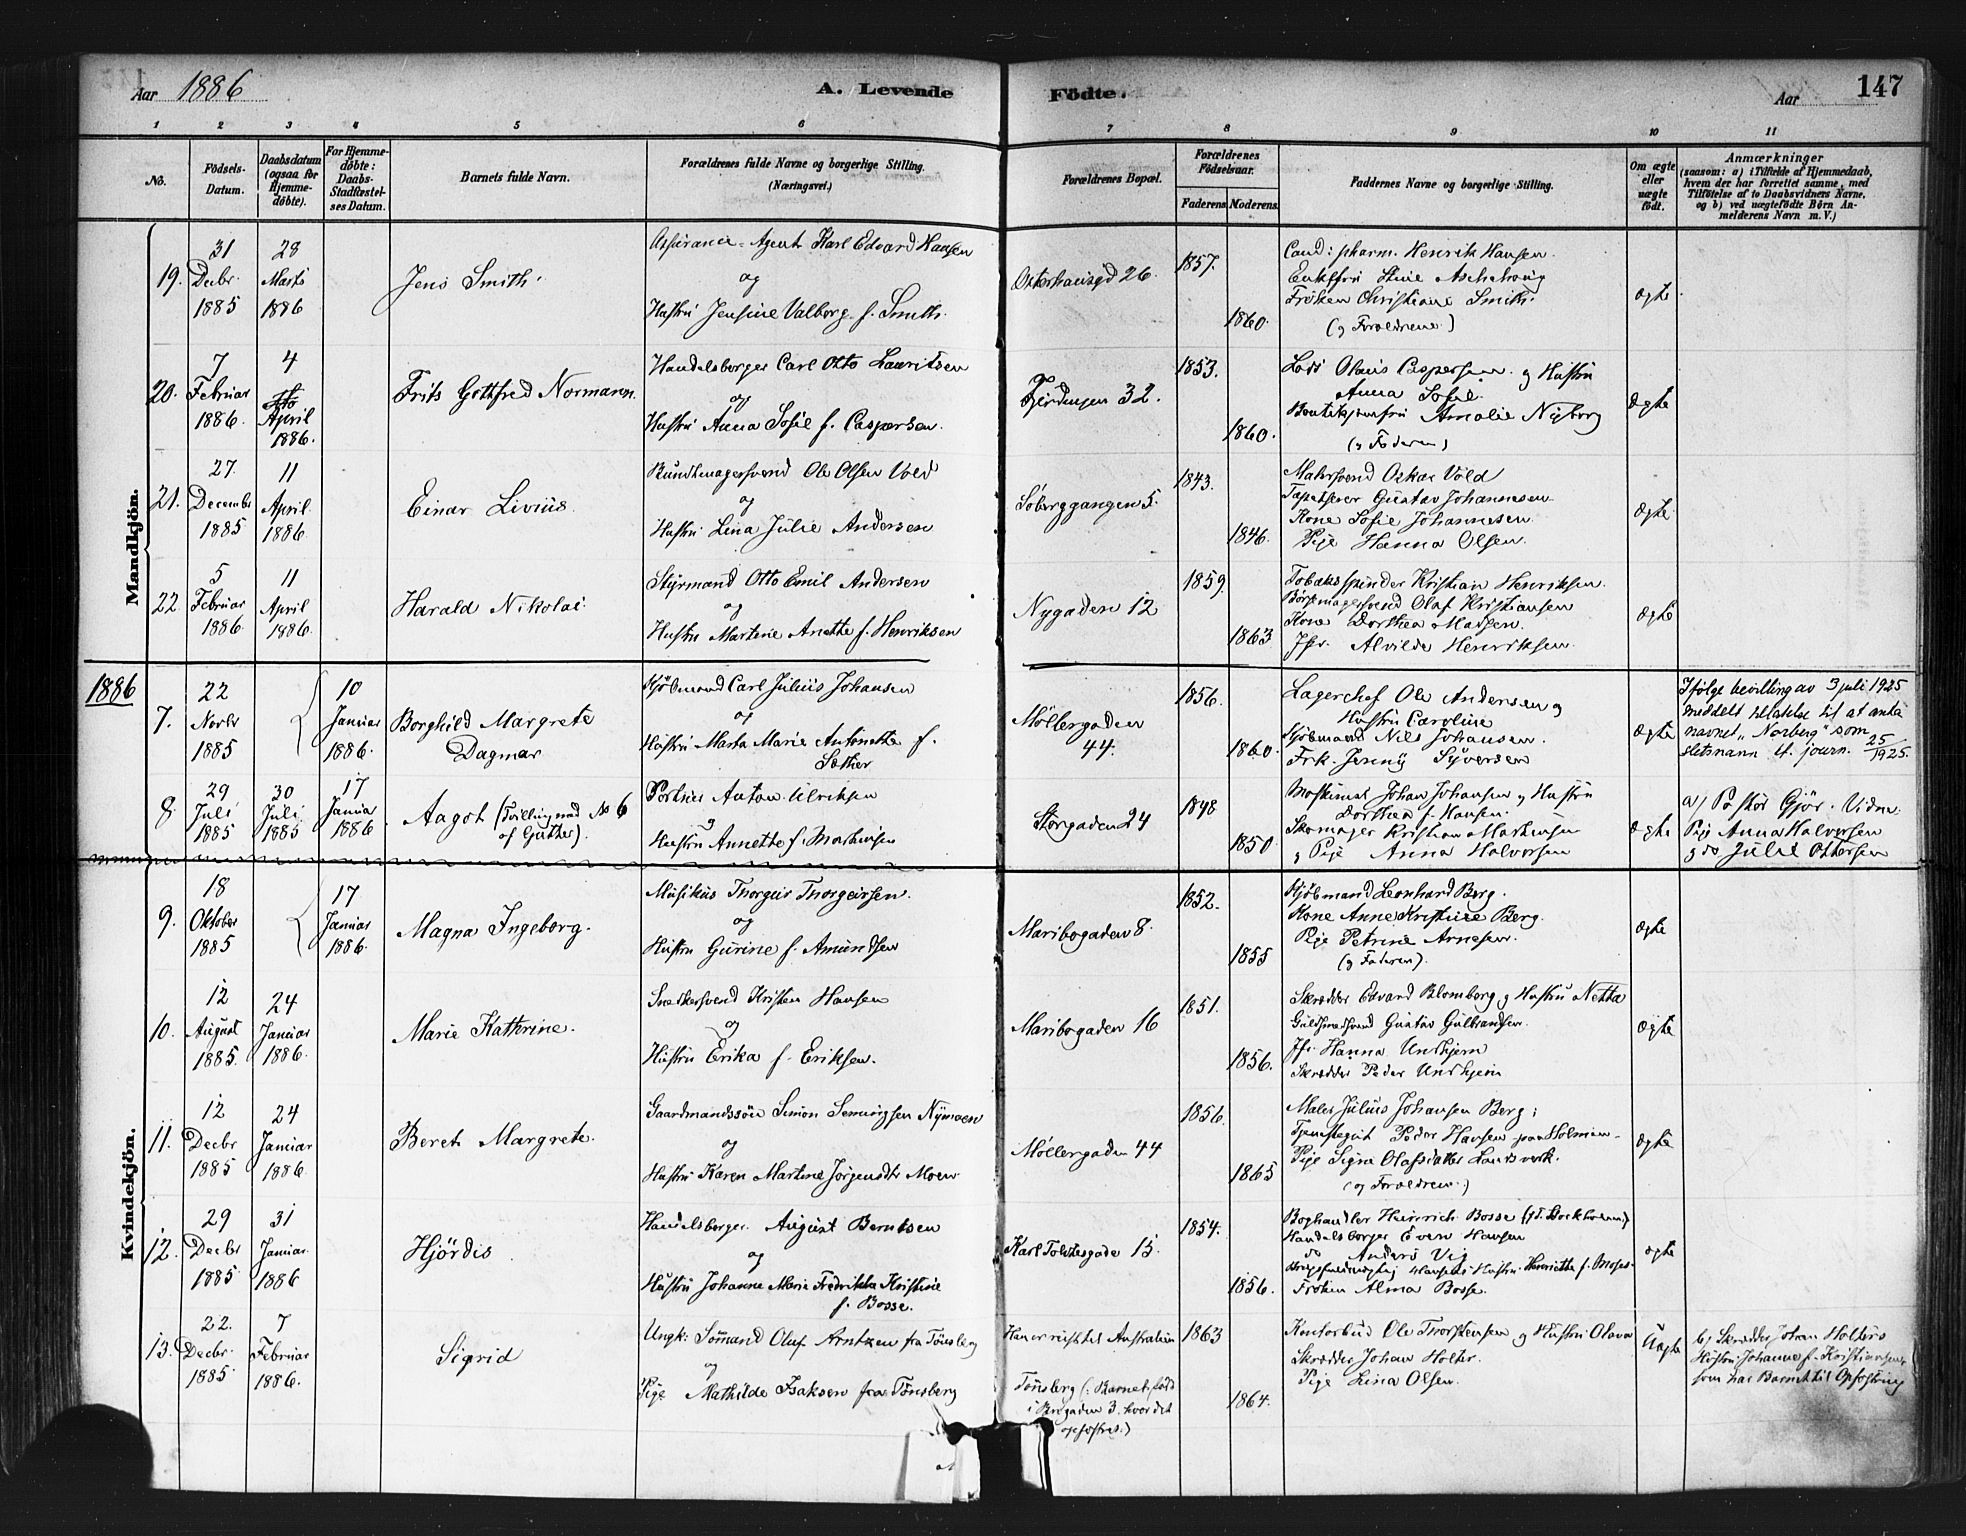 Aar 1886
A. Levende
Födte.
Aar
147
1 2 3 4 5 6 7 8 9 10 11
No.
Födsels-
Datum.
Daabsdatum
(ogsaa for
Hjemme-
døbte).
For Hjemme-
døbte:
Daabs-
Stadfæstel-
ses Datum.
Barnets fulde Navn.
Forældrenes fulde Navne og borgerlige Stilling.
(Næringsvei.)
Forældrenes Bopæl.
Forældrenes
Födselsaar.
Faderens. Moderens.
Faddernes Navne og borgerlige Stilling.
Om ægte
eller
uægte
født.
Anmærkninger
(saasom: a) i Tilfælde af Hjemmedaab,
hvem der har forrettet samme, med
Tilföielse af to Daabsvidners Navne,
og b) ved uægtefödte Börn An-
melderens Navn m. V.)
Mandkjön.
19.
31
Decbr.
1885
28
Marts
1886
Jens Smith
Assurance-Agent Karl Edvard Hansen
og
Hustru Jensine Valborg f. Smith.
Osterhausgd 26.
1857.
1860.
Cand: pharm. Henrik Hansen.
Enkefru Stine Aschehoug
Frøken Christiane Smith.
(og Forældrene)
ægte
20.
7
Februar
1886.
4
April
1886.
Frits Gottfred Normann.
Handelsborger Carl Otto Lauritsen
og
Hustru Anna Sofie f. Caspersen.
Fjerdingen 32.
1853.
1860.
Lods Olaus Caspersen og Hustru
Anna Sofie.
Amalie Nyborg
(og Faderen)
Ægte
21.
27.
Decembr
1885
11
April
1886.
Einar Livius.
Bundtmagersvend Ole Olsen Vold
og
Hustru Lina Julie Andersen
Søberggangen 5.
1843.
1846.
Malersvend Oskar Vold
Tapetserer Gustav Johannesen
Kone Sofie Johannesen
Pige Hanna Olsen.
Ægte
22.
5
Februar
1886.
11
April
1886.
Harald Nikolai.
Styrmand Otto Emil Andersen
og
Hustru Martine Anette f. Henriksen
Nygaden 12
1859.
1863
Tobaksspinder Kristian Henriksen.
Børstmagersvend Olaf Kristiansen
Kone Dorthea Madsen.
Jfr. Alvilde Henriksen.
Ægte
1886
7.
22
Novbr
1885
10
Januar
1886.
Borghild Margrete
Dagmar
Kjöbmand Carl Julius Johansen
og
Hustru Marta Marie Antonette f.
Sæther
Møllergaden
44.
1856.
1860.
Lagerchef Ole Andersen og
Hustru Caroline
Kjöbmand Nils Johansen.
Frk. Jenny Syversen
Ægte
Ifølge bevilling av 3 juli 1925
meddelt tilladelse til at anta
navnet „Norberg" som
slektsnavn cf. journ. 25/1925.
8.
29
Juli
1885
30
Juli
1885
17
Januar
1886.
Aagot (Tvilling med No 6
af Gutter).
Portner Anton Ulriksen
og
Hustru Annette f. Martinsen
Storgaden 24
1848
1850.
Maskinist Johan Johansen og Hustru
Dorthea f. Hansen.
Skomager Kristian Martinsen
og Pige Anna Halvorsen
Ægte
a) Pastor Gjör. Vidner:
Pige Anna Halvorsen
og do Julie Ottersen
Kvindekjön.
9.
18
Oktober
1885
17
Januar
1886.
Magna Ingeborg.
Musikus Thorgeir Thorgeirsen.
og
Hustru Gurine f. Amundsen
Maribogaden 8.
1852.
1855
Kjöbmand Leonhard Berg.
Kone Anne Kristine Berg.
Pige Petrine Arnesen.
(og Faderen).
Ægte
10.
12
August
1885.
24
Januar
1886.
Marie Kathrine.
Snedkersvend Kristen Hansen
og
Hustru Erika f. Eriksen.
Maribogaden 16
1851.
1856.
Skrædder Edvard Blomborg og Hustru Netta
Guldsmedsvend Gustav Gulbrandsen.
Jfr. Hanna Undhjem
Skrædder Peder Undhjem
Ægte
11.
12
Decbr
1885
24
Januar
1886.
Beret Margrete.
Gaardmandssøn Simon Nymoen
og
Hustru Karen Martine Jørgensdtr Moen
Møllergaden 44
1856.
1865
Maler Julius Johansen Berg;
Tjenestegut Peder Hansen paa Holmen
Pige Signe Olafsdatter Landsverk.
(og Forældrene.)
Ægte
12.
29
Decbr
1885
31
Januar
1886
Hjördis
Handelsborger August Berntsen
og
Hustru Johanne Marie Fredrikke Kristine
f. Bosse.
Karl 15.
1854.
1856.
Boghandler Heinrich Bosse (fd. Stockholm)
Handelsborger Even Hansen
do Anders Vig
Hustru Henriette f. Moses
Frøken Alma Bosse.
Ægte
13.
22.
Decbr.
1885
7
Februar
1886.
Sigrid
Ungk: Sömand Oluf Arntzen fra Tönsberg
og
Pige Mathilde Isaksen fra Tönsberg
Han er reist til Australien
Tönsberg (: Barnet född
i Brugaden 3. hvor det
opfostres.)
1863
1864.
Kontorbud Ole Thorstensen og Hustru Olava
Skrædder Johan Holter.
Pige Lina Olsen.
Uægte
b) Skrædder Johan Holters
Hustru Johanne f. Kristiansen,
som har Barnet til Opfostring